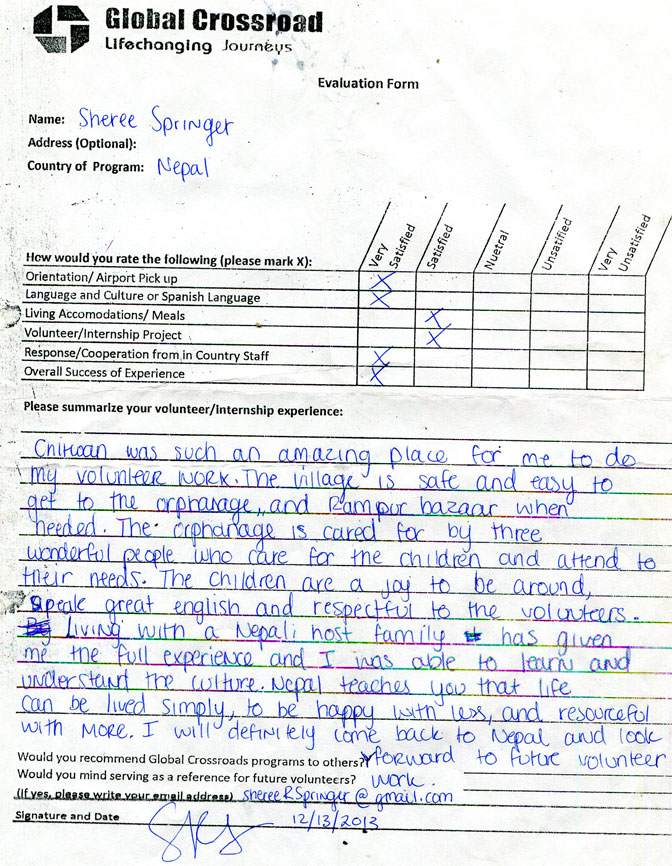 Global Crossroad
Lifechanging Journeys
Evaluation Form
Name: Sheree Springer
Address (Optional):
Country of Program: Nepal
How would you rate the following (please mark X): Very Satisfied Satisfied Nuetral Unsatified Very Unsatisfied
Orientation/ Airport Pick up X
Language and Culture or Spanish Language X
Living Accomodations/ Meals X
Volunteer/Internship Project X
Response/Cooperation from in Country Staff X
Overall Success of Experience X
Please summarize your volunteer/Internship experience:
Chitwan was such an amazing place for me to do
my volunteer work. The village is safe and easy to
get to the orphanage, and Rampur bazaar when
needed. The orphanage is cared for by three
wonderful people who care for the children and attend to
their needs. The children are a joy to be around,
speak great english and respectful to the volunteers.
Living with a Nepali host family has given
me the full experience and I was able to learn and
understand the culture. Nepal teaches you that life
can be lived simply, to be happy with less, and resourceful
with more. I will definitely come back to Nepal and look
Would you recommend Global Crossroads programs to others? forward to future volunteer
Would you mind serving as a reference for future volunteers? work.
(If yes, please write your email address) shereeRSpringer@gmail.com
Signature and Date 12/13/2013